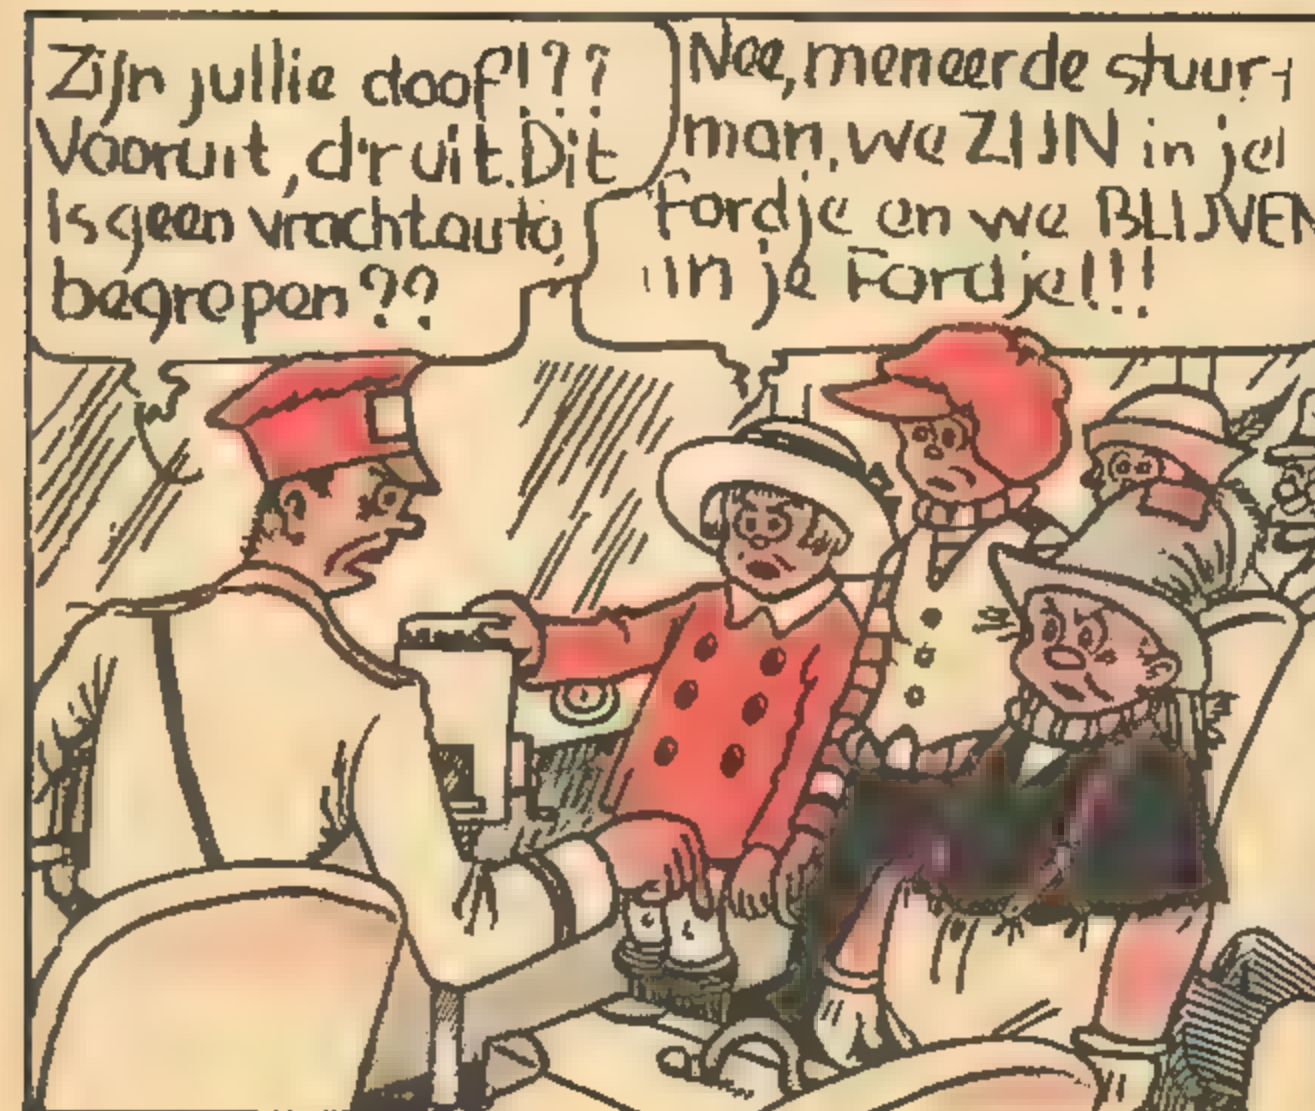 Zijn jullie doof!??
Vooruit, d'r uit. Dit
is geen vrachtauto,
begrepen??
Nee, meneer de stuur-
man, we ZIJN in je
Fordje en we BLIJVEN
in je Fordje!!!